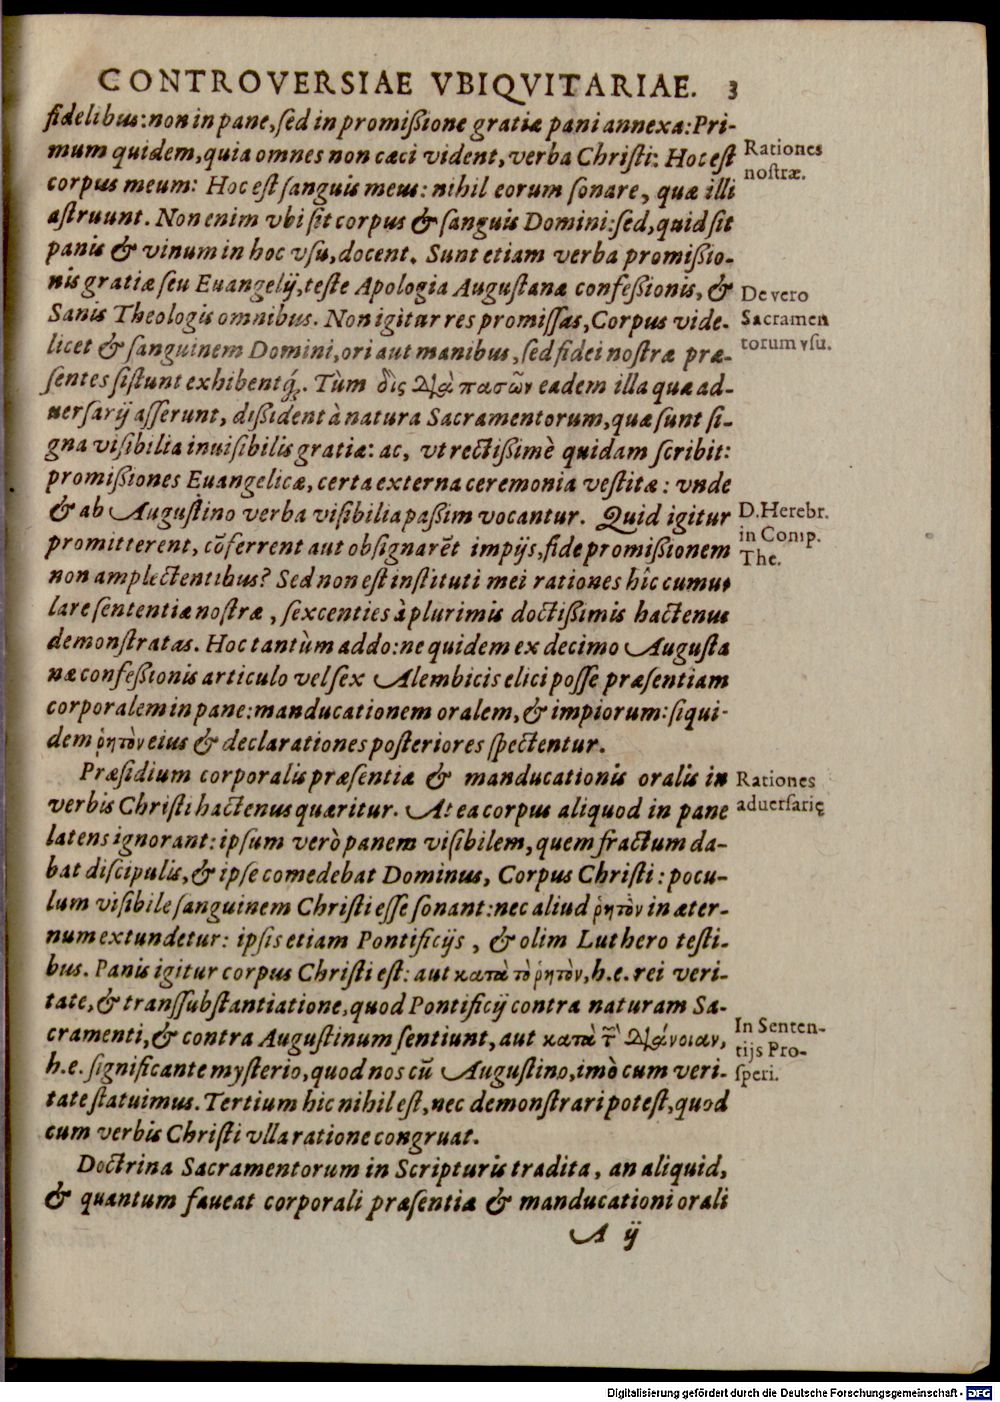 CONTROVERSIAE VBIQVITARIAE. 3
fidelibus: non in pane, sed in promißione gratiæ pani annexa: Pri-
mum quidem, quia omnes non cæci vident, verba Christi: Hoc est
Rationes
nostræ.
corpus meum: Hoc est sanguis meus: nihil eorum sonare, quæ illi
astruunt. Non enim vbi sit corpus & sanguis Domini: sed, quid sit
panis & vinum in hoc vsu, docent. Sunt etiam verba promißio-
nis gratiæ seu Euangelij, teste Apologia Augustanæ confeßionis, &
De vero
Sacramen
torum vsu.
Sanis Theologis omnibus. Non igitur res promissas, Corpus vide-
licet & sanguinem Domini, ori aut manibus, sed fidei nostræ præ-
sentes sistunt exhibentq́;. Tùm δὶς διὰ πασῶν eadem illa quæ ad-
uersarij asserunt, dißident à natura Sacramentorum, quæ sunt si-
gna visibilia inuisibilis gratiæ: ac, vt rectißimè quidam scribit:
promißiones Euangelicæ, certa externa ceremonia vestitæ: vnde
& ab Augustino verba visibilia paßim vocantur. Quid igitur
D. Herebr.
in Comp.
The.
promitterent, cōferrent aut obsignarēt impijs, fide promißionem
non amplectentibus? Sed non est instituti mei rationes hîc cumu-
lare sententiæ nostræ, sexcenties à plurimis doctißimis hactenus
demonstratas. Hoc tantùm addo: ne quidem ex decimo Augusta
næ confeßionis articulo vel sex Alembicis elici posse præsentiam
corporalem in pane: manducationem oralem, & impiorum: siqui-
dem ῥητὸν eius & declarationes posteriores spectentur.
Præsidium corporalis præsentiæ & manducationis oralis in
Rationes
aduersarię
verbis Christi hactenus quæritur. At ea corpus aliquod in pane
latens ignorant: ipsum verò panem visibilem, quem fractum da-
bat discipulis, & ipse comedebat Dominus, Corpus Christi: pocu-
lum visibile sanguinem Christi esse sonant: nec aliud ῥητὸν in æter-
num extundetur: ipsis etiam Pontificijs, & olim Luthero testi-
bus. Panis igitur corpus Christi est: aut κατὰ τὸ ῥητὸν, h.e. rei veri-
tate, & transsubstantiatione, quod Pontificij contra naturam Sa-
cramenti, & contra Augustinum sentiunt, aut κατὰ τ̃ διάνοιαν,
In Senten-
tijs Pro-
speri.
h.e. significante mysterio, quod nos cū Augustino, imò cum veri-
tate statuimus. Tertium hic nihil est, nec demonstrari potest, quod
cum verbis Christi vlla ratione congruat.
Doctrina Sacramentorum in Scripturis tradita, an aliquid,
& quantum faueat corporali præsentiæ & manducationi orali
A ij
Digitalisierung gefördert durch die Deutsche Forschungsgemeinschaft - DFG